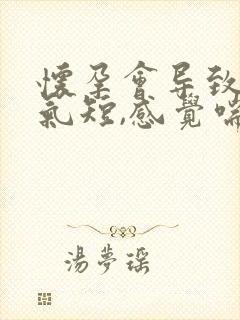 懷孕會导致
氣短,感覺喘
湯夢瑶